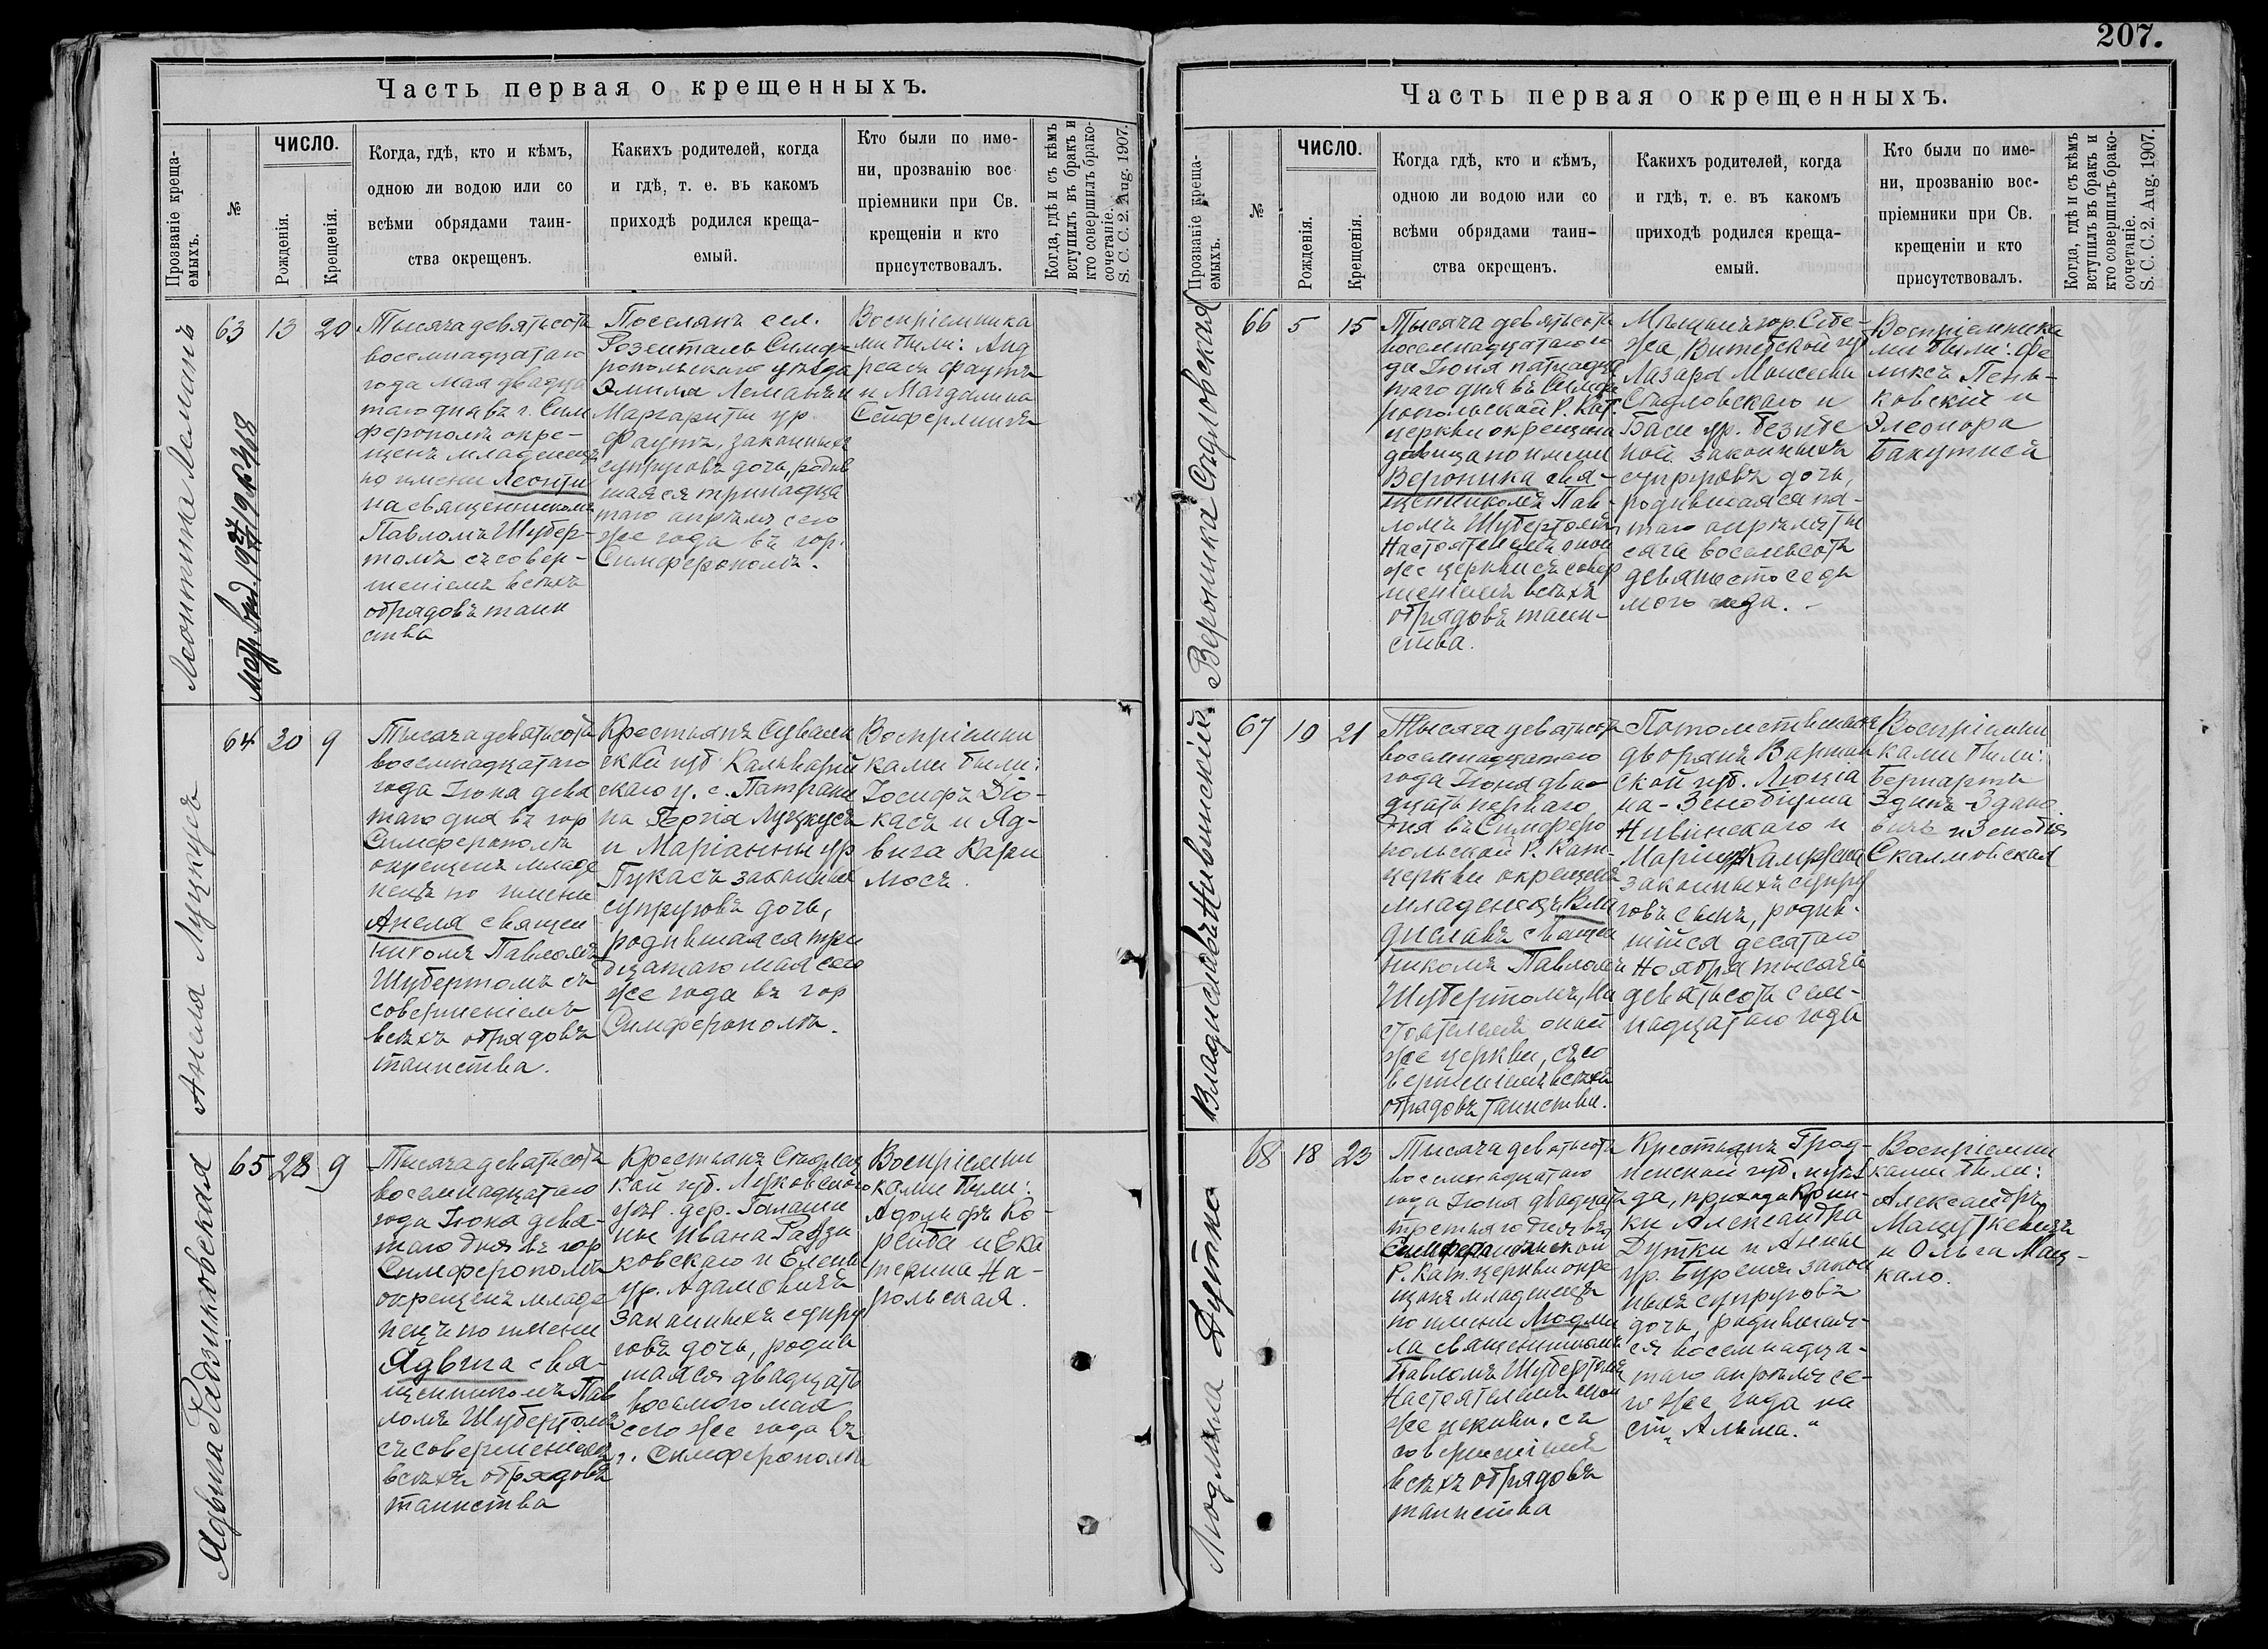 207.
Часть первая о крещенныхъ.
Прозваніе креща-
емыхъ.
№
ЧИСЛО.
Рожденія.
Крещенія.
Когда, гдѣ, кто и кѣмъ,
одною ли водою или со
всѣми обрядами таин-
ства окрещенъ.
Какихъ родителей, когда
и гдѣ, т. е. въ какомъ
приходѣ родился креща-
емый.
Кто были по име-
ни, прозванію вос
пріемники при Св.
крещеніи и кто
присутствовалъ.
Когда, гдѣ и съ кѣмъ
вступилъ въ бракъ и
кто совершилъ брако-
сочетаніе.
S. C. C. 2. Aug. 1907.
Леонтина Леманъ
63
13
20
Тысяча девятьсотъ
восемнадцатаго
года мая двадца
таго дня въ г. Сим
ферополѣ окре-
щенъ младенецъ
по имени Леонти
на священникомъ
Павломъ Шубер-
томъ съ совер-
шеніемъ всѣхъ
обрядовъ таин
ства
Поселянъ сел.
Розенталь Симфе
ропольскаго уѣзда
Эмиля Леманъ и
Маргариты ур.
Фаутъ, законныхъ
супруговъ дочь, родив
шаяся тринадца
таго апрѣля сего
же года въ гор.
Симферополѣ.
Воспріемника
ми были: Анд
реасъ Фаутъ
и Магдалина
Сейферлингъ
Анеля Луцкусъ
64
30
9
Тысяча девятьсотъ
восемнадцатаго
года Іюня девя
таго дня въ гор
Симферополѣ
окрещенъ младе
нецъ по имени
Анеля священ
никомъ Павломъ
Шубертомъ съ
совершеніемъ
всѣхъ обрядовъ
таинства.
Крестьянъ Сувалк
ской губ. Кальварій
скаго у. с. Патрани
на Георгія Луцкусъ
и Маріанны ур
Пукасъ законныхъ
супруговъ дочь,
родившаяся три
дцатаго мая сего
же года въ гор
Симферополѣ.
Воспріемни
ками были:
Іосифъ Діо-
касъ и Яд-
вига Кари
люсъ.
Ядвига Радзиковская
65
28
9
Тысяча девятьсотъ
восемнадцатаго
года Іюня девя-
таго дня въ гор
Симферополѣ
окрещенъ младе
нецъ по имени
Ядвига свя-
щенникомъ Пав
ломъ Шубертомъ
съ совершеніемъ
всѣхъ обрядовъ
таинства
Крестьянъ Сѣдлец
кой губ. Луковскаго
уѣз. дер.
Ивана Радзи
ковскаго и Елены
ур. Адамовичъ
законныхъ супру
говъ дочь, родив
шаяся двадцать
восьмого мая
сего же года въ
г. Симферополѣ
Воспріемни
ками были:
Адольфъ Ко-
рейба и Ека
терина На-
рольская.
Часть первая о крещенныхъ.
Прозваніе креща-
емыхъ.
№
ЧИСЛО.
Рожденія.
Крещенія.
Когда гдѣ, кто и кѣмъ,
одною ли водою или со
всѣми обрядами таин-
ства окрещенъ.
Какихъ родителей, когда
и гдѣ, т. е. въ какомъ
приходѣ родился креща-
емый.
Кто были по име-
ни, прозванію вос-
пріемники при Св.
крещеніи и кто
присутствовалъ.
Когда, гдѣ и съ кѣмъ
вступилъ въ бракъ и
кто совершилъ брако-
сочетаніе.
S. C. C. 2. Aug. 1907.
Вероника Сѣдловская
66
5
15
Тысяча девятьсотъ
восемнадцатаго го
да Іюня пятнадца
таго дня въ Симфе
ропольской Р. Кат.
церкви окрещена
дѣвица по имени
Вероника свя-
щенникомъ Пав-
ломъ Шубертомъ
Настоятелемъ оной
же церкви съ совер
шеніемъ всѣхъ
обрядовъ таин-
ства.
Мѣщанъ гор. Себе-
жа, Витебской губ
Лазаря Моисеева
Сѣдловскаго и
Баси ур.
законныхъ
супруговъ дочь,
родившаяся пя-
таго апрѣля ты
сяча восемьсотъ
девяносто седь
мого года.
Воспріемника
ми были: Фе
ликсъ Пень-
ковскій и
Элеонора
Бакутней
Владиславъ Нивинскій
67
10
21
Тысяча девятьсотъ
восемнадцатаго
года Іюня два-
дцать перваго
дня въ Симферо
польской Р. Кат-
церкви окрещенъ
младенецъ Вла
диславъ священ
никомъ Павломъ
Шубертомъ, На
стоятелемъ оной
же церкви, съ со
вершеніемъ всѣхъ
обрядовъ таинства.
Потомственныхъ
дворянъ Варшав
ской губ. Люціа
на-Зенобіуша
Нивинскаго и
Маріи ур.
законныхъ супру
говъ сынъ, родив-
шійся десятаго
Ноября тысяча
девятьсотъ сем-
надцатаго года
Воспріемни
ками были:
Бернардъ
Здано
вичъ и Зенобія
Скалмовская
Людмила Дутко
68
18
23
Тысяча девятьсотъ
восемнадцатаго
года Іюня двадцать
третьяго дня въ
Симферопольской
Р. Кат. церкви окре
щенъ младенецъ
по имени Людми
ла священникомъ
Павломъ Шубертомъ
Настоятелемъ оной
же церкви, съ
совершеніемъ
всѣхъ обрядовъ
таинства
Крестьянъ Грод-
ненской губ. и уѣз
да, прихода Крин-
ки Александра
Дутки и Анны
ур. закон
ныхъ супруговъ
дочь, родившая-
ся восемнадца-
таго апрѣля се-
го же года на
ст. „Альма."
Воспріемни
ками были:
Александръ
Мацуткевичъ
и Ольга Мац-
кало.